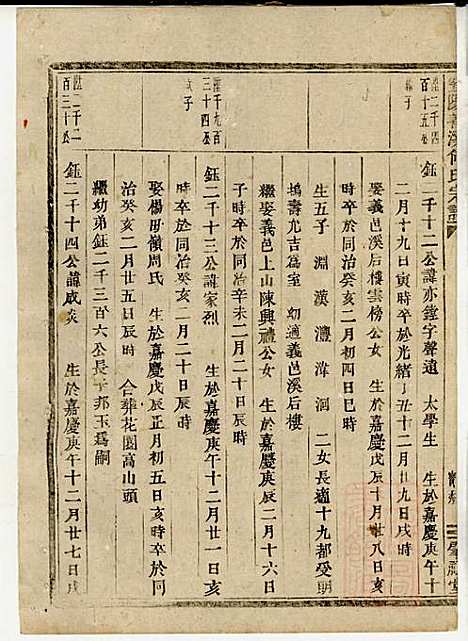 鈺二千十二公諱亦鏜字聲遠 太學生 生於嘉慶庚午十
二月十九日寅時卒於光緒丁丑十二月廿九日戌時
娶義邑溪后樓雲榜公女 生於嘉慶戊辰十月廿八日亥
時卒於同治癸亥二月初四日巳時
生五子 淵 漢 灃 湋 洄 二女長適十九都受明
塢壽允吉為室 幼適義邑溪后樓
繼娶義邑上山陳興禮公女 生於嘉慶庚辰二月十六日
子時卒於同治辛未二月二十日辰時
三十四公
次子
鈺二千十三公諱家烈 生於嘉慶庚午十二月廿一日
時卒於同治癸亥二月二十日辰時
娶楊毋嶺周氏 生於嘉慶戊辰正月初五日亥時卒於同
治癸亥二月廿五日辰時 合葬花園高山頭
繼幼弟鈺二千三百六公長子邦玉為嗣
百三十公
鈺二千十四公諱咸炎 生於嘉慶庚午十二月廿七日戌